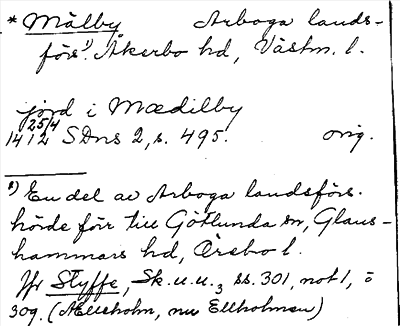 * Mälby Arboga lands-
förs¹⁾ Åkerbo hd, Västm. l.
jord i Mædilby
25/4
1412 SDns 2, s. 495. orig.
¹⁾ En del av Arboga landsförs.
hörde förr till Götlunda sn, Glans-
hammars hd, Örebro l.
Jfr Styffe, Sk. u. u.₃ ss. 301, not 1, o
309. (Ælisholm, nu Ellholmen)